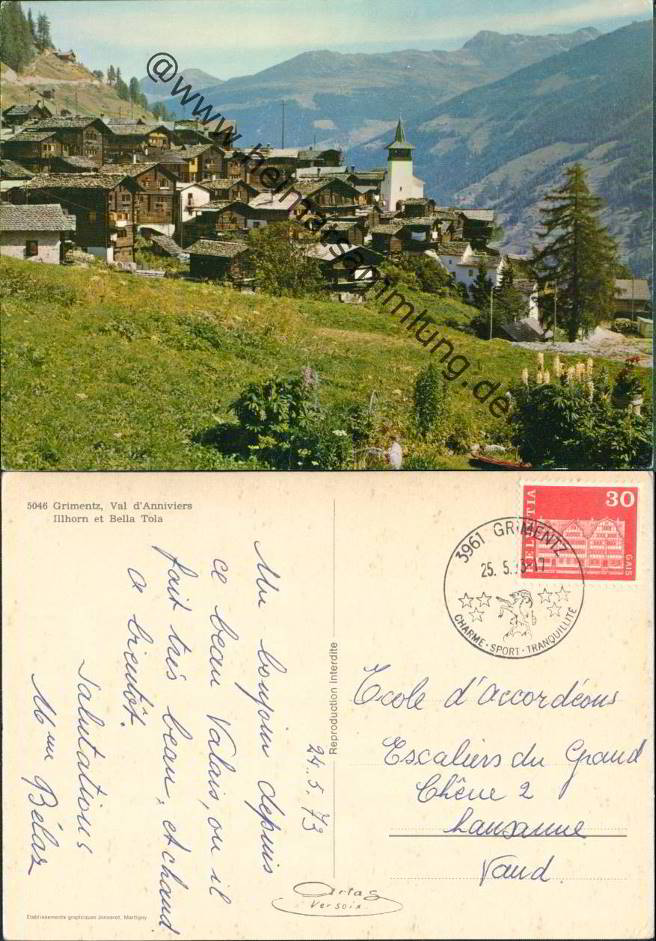 @www.heimatsammlung.de
5046 Grimentz, Val d'Anniviers
Illhorn et Bella Tola
HELVETIA
30
GAIS
3961 GRIMENTZ
25. 5.
CHARME - SPORT - TRANQUILLITE
24.5.73
Un bonjour depuis
ce beau Valais, ou il
fait très beau, et chaud.
A bientôt.
Salutations
Mme Bélaz
Reproduction interdite
Ecole d'accordéons
Escaliers du Grand
Chêne 2
Lausanne
Vaud.
Artas
Versoix
Etablissements graphiques Jonneret, Martigny